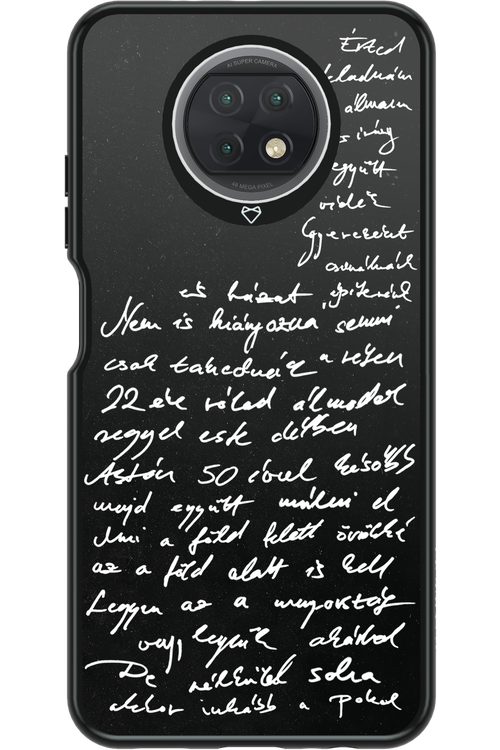 AI SUPER CAMERA
48 MEGA PIXEL
Érted
álmaim
s irány
együtt
vidék
Gyerekeket
csinálnánk
és házat építenénk
Nem is hiányozna semmi
csak takednánk a réten
22 éve rólad álmodok
reggel este délben
Aztán 50 évvel később
majd együtt múlni el
Ami a föld felett örökké
az a föld alatt is kell
Legyen az a mennyország
vagy legyünk akárhol
De nélküled soha
akkor inkább a pokol